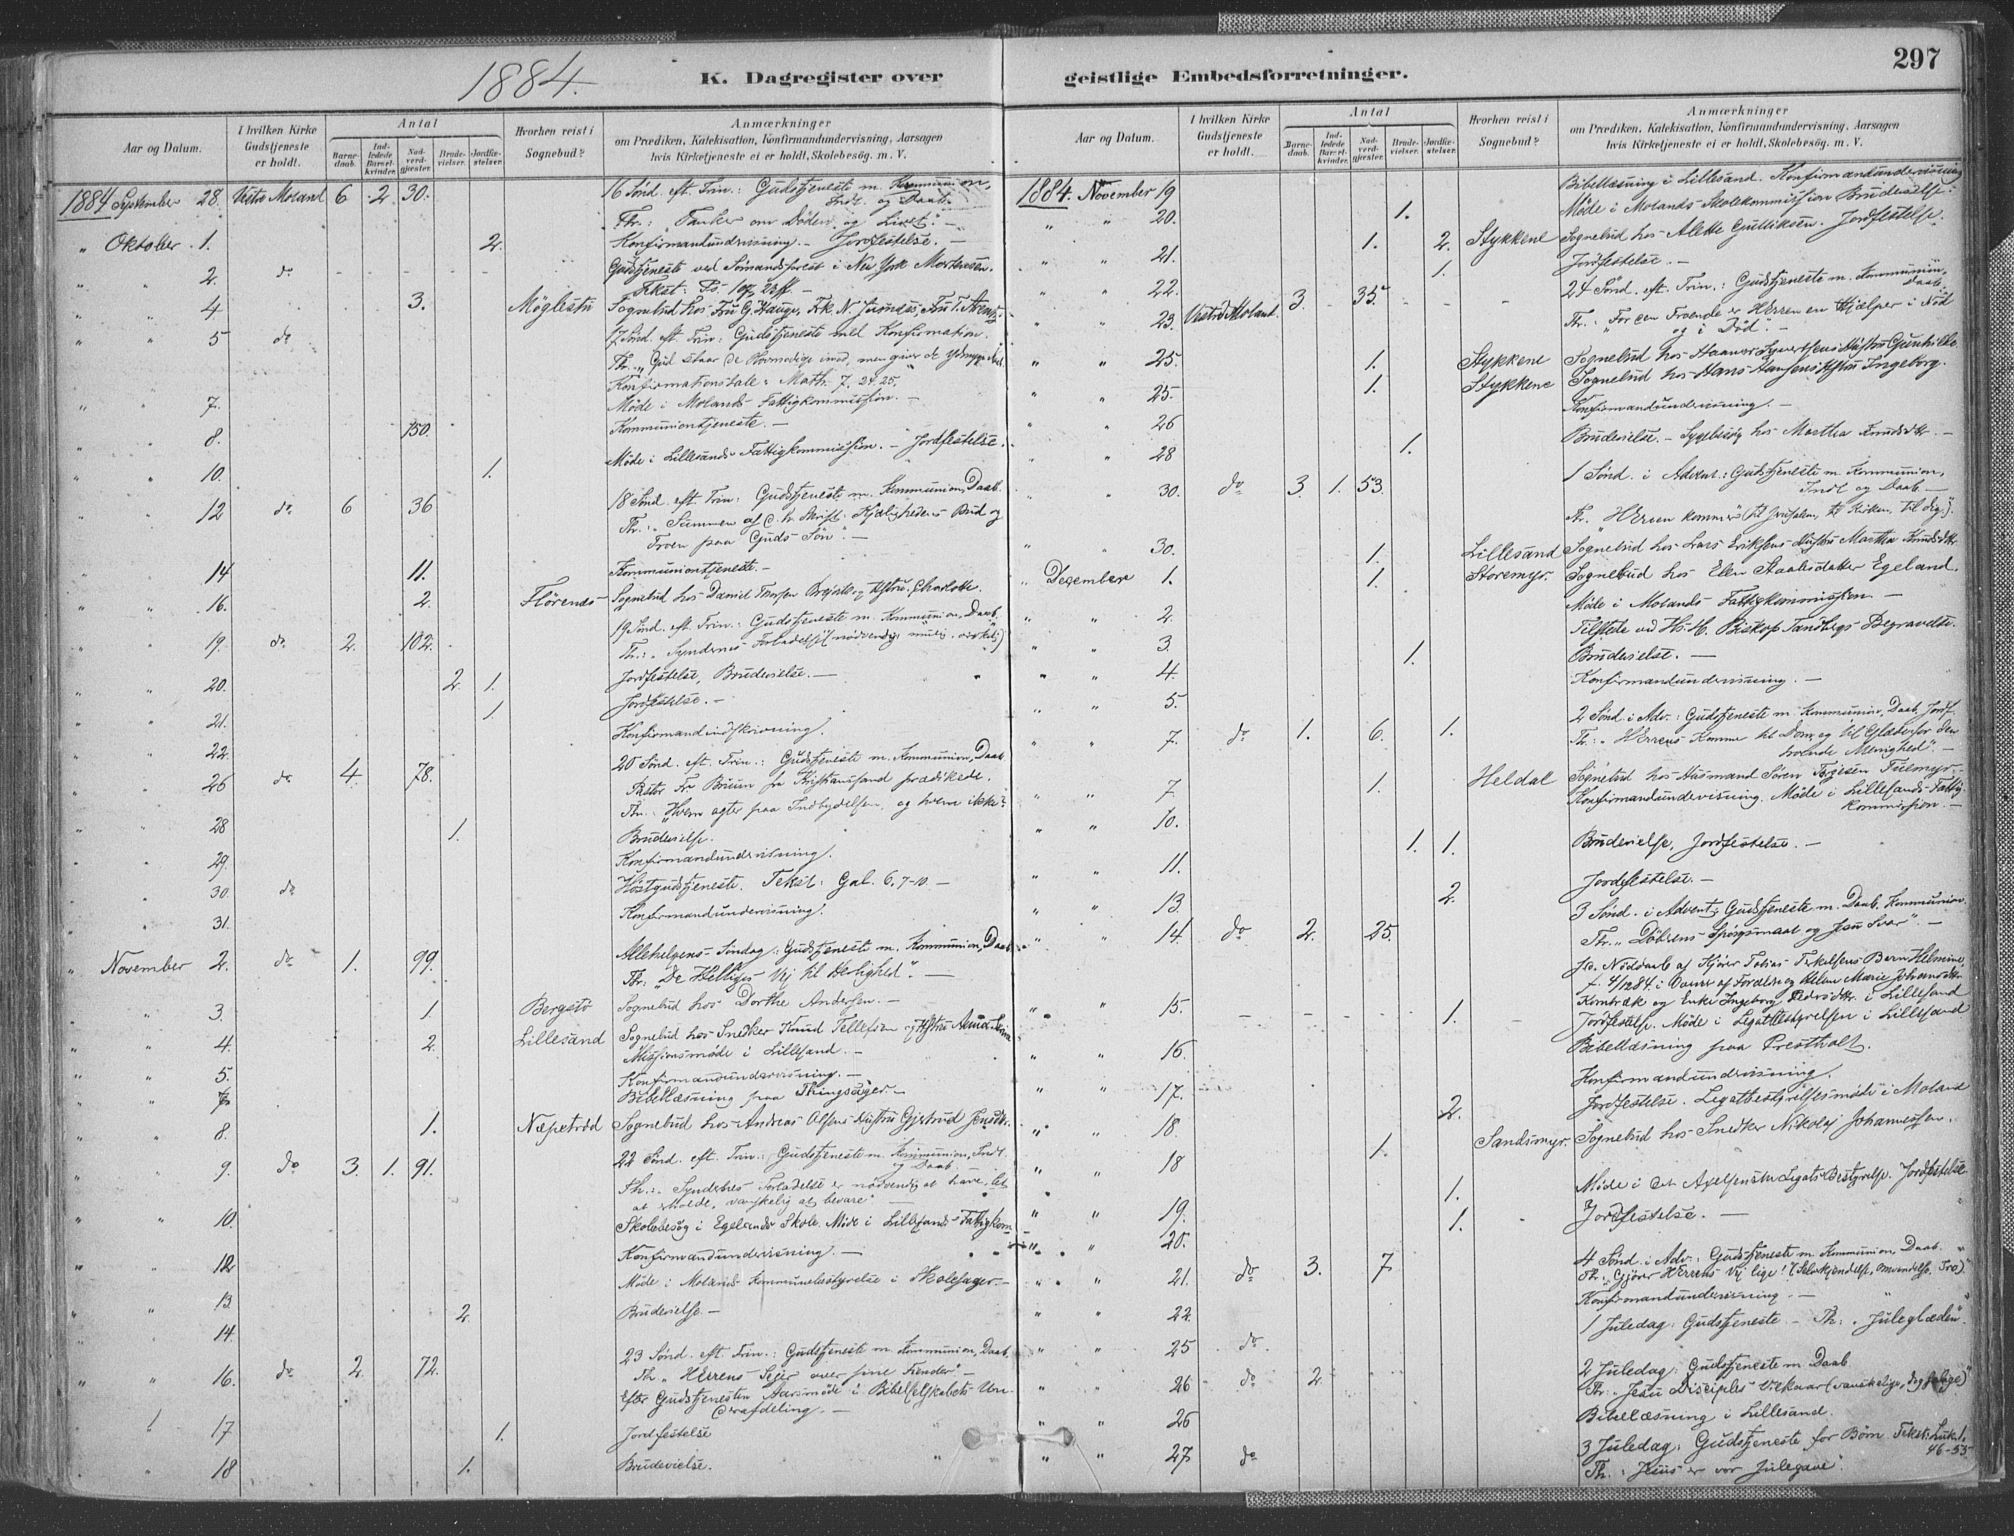 297
1884.
K. Dagregister over geistlige Embedsforretninger.
Aar og Datum.
I hvilken Kirke Gudstjeneste er holdt.
Antal
Barnedaab.
Indledede Barselkvinder.
Nadverdgjester.
Brudevielser.
Jordfæstelser.
Hvorhen reist i Sognebud?
Anmærkninger
om Prædiken, Katekisation, Konfirmandundervisning, Aarsagen
hvis Kirketjeneste ei er holdt, Skolebesøg. m. V.
1884 September 28. Vestre Moland 6 2 30. 16 Sønd. eft. Trin.: Gudstjeneste m. Kommunion,
Indl. og Daab.
Th.: "Tanker om Døden og Livet". —
" Oktober 1. 2. Konfirmandundervisning. — Jordfestelse. —
" " 2. do Gudstjeneste ved Sømandsprest i New York Mortensen.
" " 4 3. Möglestu Sognebud hos Fru G. Hauge, Frk. N.
" " 5 do 17 Sønd. eft. Trin: Gudstjeneste med Konfirmation.
Th. "Gud staar de Hovmodige imod, men giver de Ydmyge
Konfirmationstale: Math. 7, 24. 25.
" " 7. Møde i Molands Fattigkommission. —
" " 8. 150. Kommuniontjeneste. —
" " 10. 1. Møde i Lillesands Fattigkommission. — Jordfestelse.
" " 12 do 6 36 18 Sønd. eft. Trin: Gudstjeneste m. Kommunion, Daab.
Th.: "Summen af d. h. Skrift: Kjærlighedens Bud og
Troen paa Guds Søn". —
" " 14 11. Kommuniontjeneste. —
" " 16. 2. Flørenæs Sognebud hos Daniel og Hstru Charlotte.
" " 19. do 2. 102. 19 Sønd. eft. Trin.: Gudstjeneste m. Kommunion, Daab.
Th.: "Syndernes Forladelse (nødvendig, mulig, virkelig)
" " 20. 2 1. Jordfestelse, Brudevielse. —
" " 21. 1. Jordfestelse. —
" " 22. Konfirmandindskrivning.
" " 26 do 4. 78. 20 Sønd. eft. Trin.: Gudstjeneste m. Kommunion, Daab
Pastor Fr. Bruun fra Kristianssand prædikede.
Th.: "Hvem agter paa Indbydelsen, og hvem ikke?
" " 28 1. Brudevielse.
" " 29. Konfirmandundervisning.
" " 30. do Høstgudstjeneste. Tekst: Gal. 6. 7-10. —
" " 31. Konfirmandundervisning.
" November 2. do 1. 99. Allehelgens Søndag: Gudstjeneste m. Kommunion, Daab.
Th.: "De Helliges Vej til Herlighed". —
" " 3. 1. Bergstø Sognebud hos Dorthe Andersen. —
" " 4. 2. Lillesand Sognebud hos Snedker Knud Tellefsen og Hstru
Missionsmøde i Lillesand. —
" " 5. Konfirmandundervisning. —
" " 7. Bibellæsning paa Thingsager. —
" " 8. 1. Næpetrød Sognebud hos Andreas Olsens Hustru Gjertrud Jensdtr.
" " 9. do 3. 1. 91. 22 Sønd. eft. Trin.: Gudstjeneste m. Kommunion, Indl.
og Daab.
Th.: "Syndernes Forladelse er nødvendig at have, let
at miste, vanskelig at bevare" —
" " 10. Skolebesøg i Egelands Skole. Møde i Lillesands Fattigkom-
" " 12 Konfirmandundervisning. —
" " 13. Møde i Molands Kommunebestyrelse i
" " 14. 2. Brudevielse —
" " 16. do 2. 72. 23 Sønd. eft. Trin.: Gudstjeneste m. Kommunion, Daab.
Th. "Herrens Sejer over sine Fiender". —
Efter Gudstjenesten Aarsmøde i Bibelselskabets Un-
derafdeling. —
" " 17 1. Jordfestelse
" " 18 1. Brudevielse.
Aar og Datum.
I hvilken Kirke Gudstjeneste er holdt.
Antal
Barnedaab.
Indledede Barselkvinder.
Nadverdgjester.
Brudevielser.
Jordfæstelser.
Hvorhen reist i Sognebud?
Anmærkninger
om Prædiken, Katekisation, Konfirmandundervisning, Aarsagen
hvis Kirketjeneste ei er holdt, Skolebesøg. m. V.
1884. November 19 Bibellæsning i Lillesand. Konfirmandundervisning
" " 20. 1. Møde i Molands Skolekommission Brudevielse.
" " 21. 1. 2. Stykkene Sognebud hos Alette Gulliksen. Jordfestelse.
" " 22. 1. Jordfestelse. —
" " 23. Vestre Moland. 3. 35. 24 Sønd. eft. Trin.: Gudstjeneste m. Kommunion,
Daab.
Th.: "For den Troende er Herren en Hjælper i Nød
og i Død". —
" " 25. 1. Stykkene Sognebud hos Syvertsens Hustru Gunhilde.
" " 25. 1. Stykkene Sognebud hos Hans Hansens Hstru Ingeborg.
" " 26 Konfirmandundervisning. —
" " 28 1. Brudevielse. — Sygebesøg hos Martha Knudsdtr. —
" " 30. do 3. 1. 53. 1 Sønd. i Advent: Gudstjeneste m. Kommunion,
Indl. og Daab. —
Th. "Herren kommer" (til Jerusalem, til Kirken, til dig).
" " 30. 1. Lillesand Sognebud hos Lars Eriksens Hustru Martha Knudsdtr.
" Dezember 1. 1. Storemyr. Sognebud hos Elen Staalesdatter Egeland.
" " 2. Møde i Molands Fattigkommission. —
" " 3. Tilstede ved H. H. Biskop Tandbergs Begravelse.
" " 4. 1. Brudevielse. —
" " 5. Konfirmandundervisning. —
" " 7. do 1. 6. 1. 2 Sønd. i Adv.: Gudstjeneste m. Kommunion, Daab, Jordf.
Th.: "Herrens Komme til Dom og til Glæde for den
troende Menighed". —
" " 7. 1. Heldal Sognebud hos Husmand Søren Terjesen
" " 10. Konfirmandundervisning. Møde i Lillesands Fattig-
kommission. —
" " 11. 1. 1. Brudevielse, Jordfestelse. —
" " 13. 2. Jordfestelse. —
" " 14. do 2. 25. 3 Sønd. i Advent: Gudstjeneste m. Daab, Kommunion.
Th. "Døberens Spørgsmaal og Jesu Svar". —
Tobias Terkelsens Barn Helmine,
f. 4/12 84.
Ingeborg Pedersdtr. i Lillesand
" " 15. 1. Jordfestelse. Møde i Legatbestyrelsen i Lillesand
" " 16. Bibellæsning paa Prestholt.
" " 17. Konfirmandundervisning.
" " 18. 2. Jordfestelse. Legatbestyrelsesmøde i Moland
" " 18 1. Sandsmyr. Sognebud hos Snedker Nikolaj Johannessen.
" " 19. 1. Møde i det Legats Bestyrelse. Jordfestelse
" " 20. 1. Jordfestelse. —
" " 21. do 3. 7 4 Sønd. i Adv.: Gudstjeneste m. Kommunion, Daab.
Th. "Gjører Herrens Vej lige! (Selvkjendelse, Omvendelse, Tro)."
" " 22. Konfirmandundervisning. —
" " 25 do 1 Juledag: Gudstjeneste — Th.: "Juleglæden".
" " 26 do 2 2 Juledag: Gudstjeneste m. Daab
Th. "Jesu Disciples Vilkaar (vanskelige, dog salige)"
" " 26 Bibellæsning i Lillesand.
" " 27 do 3 Juledag: Gudstjeneste for Børn. Tekst: Luk. 1.
46-55
Th.: "Jesus er vor Julegave".